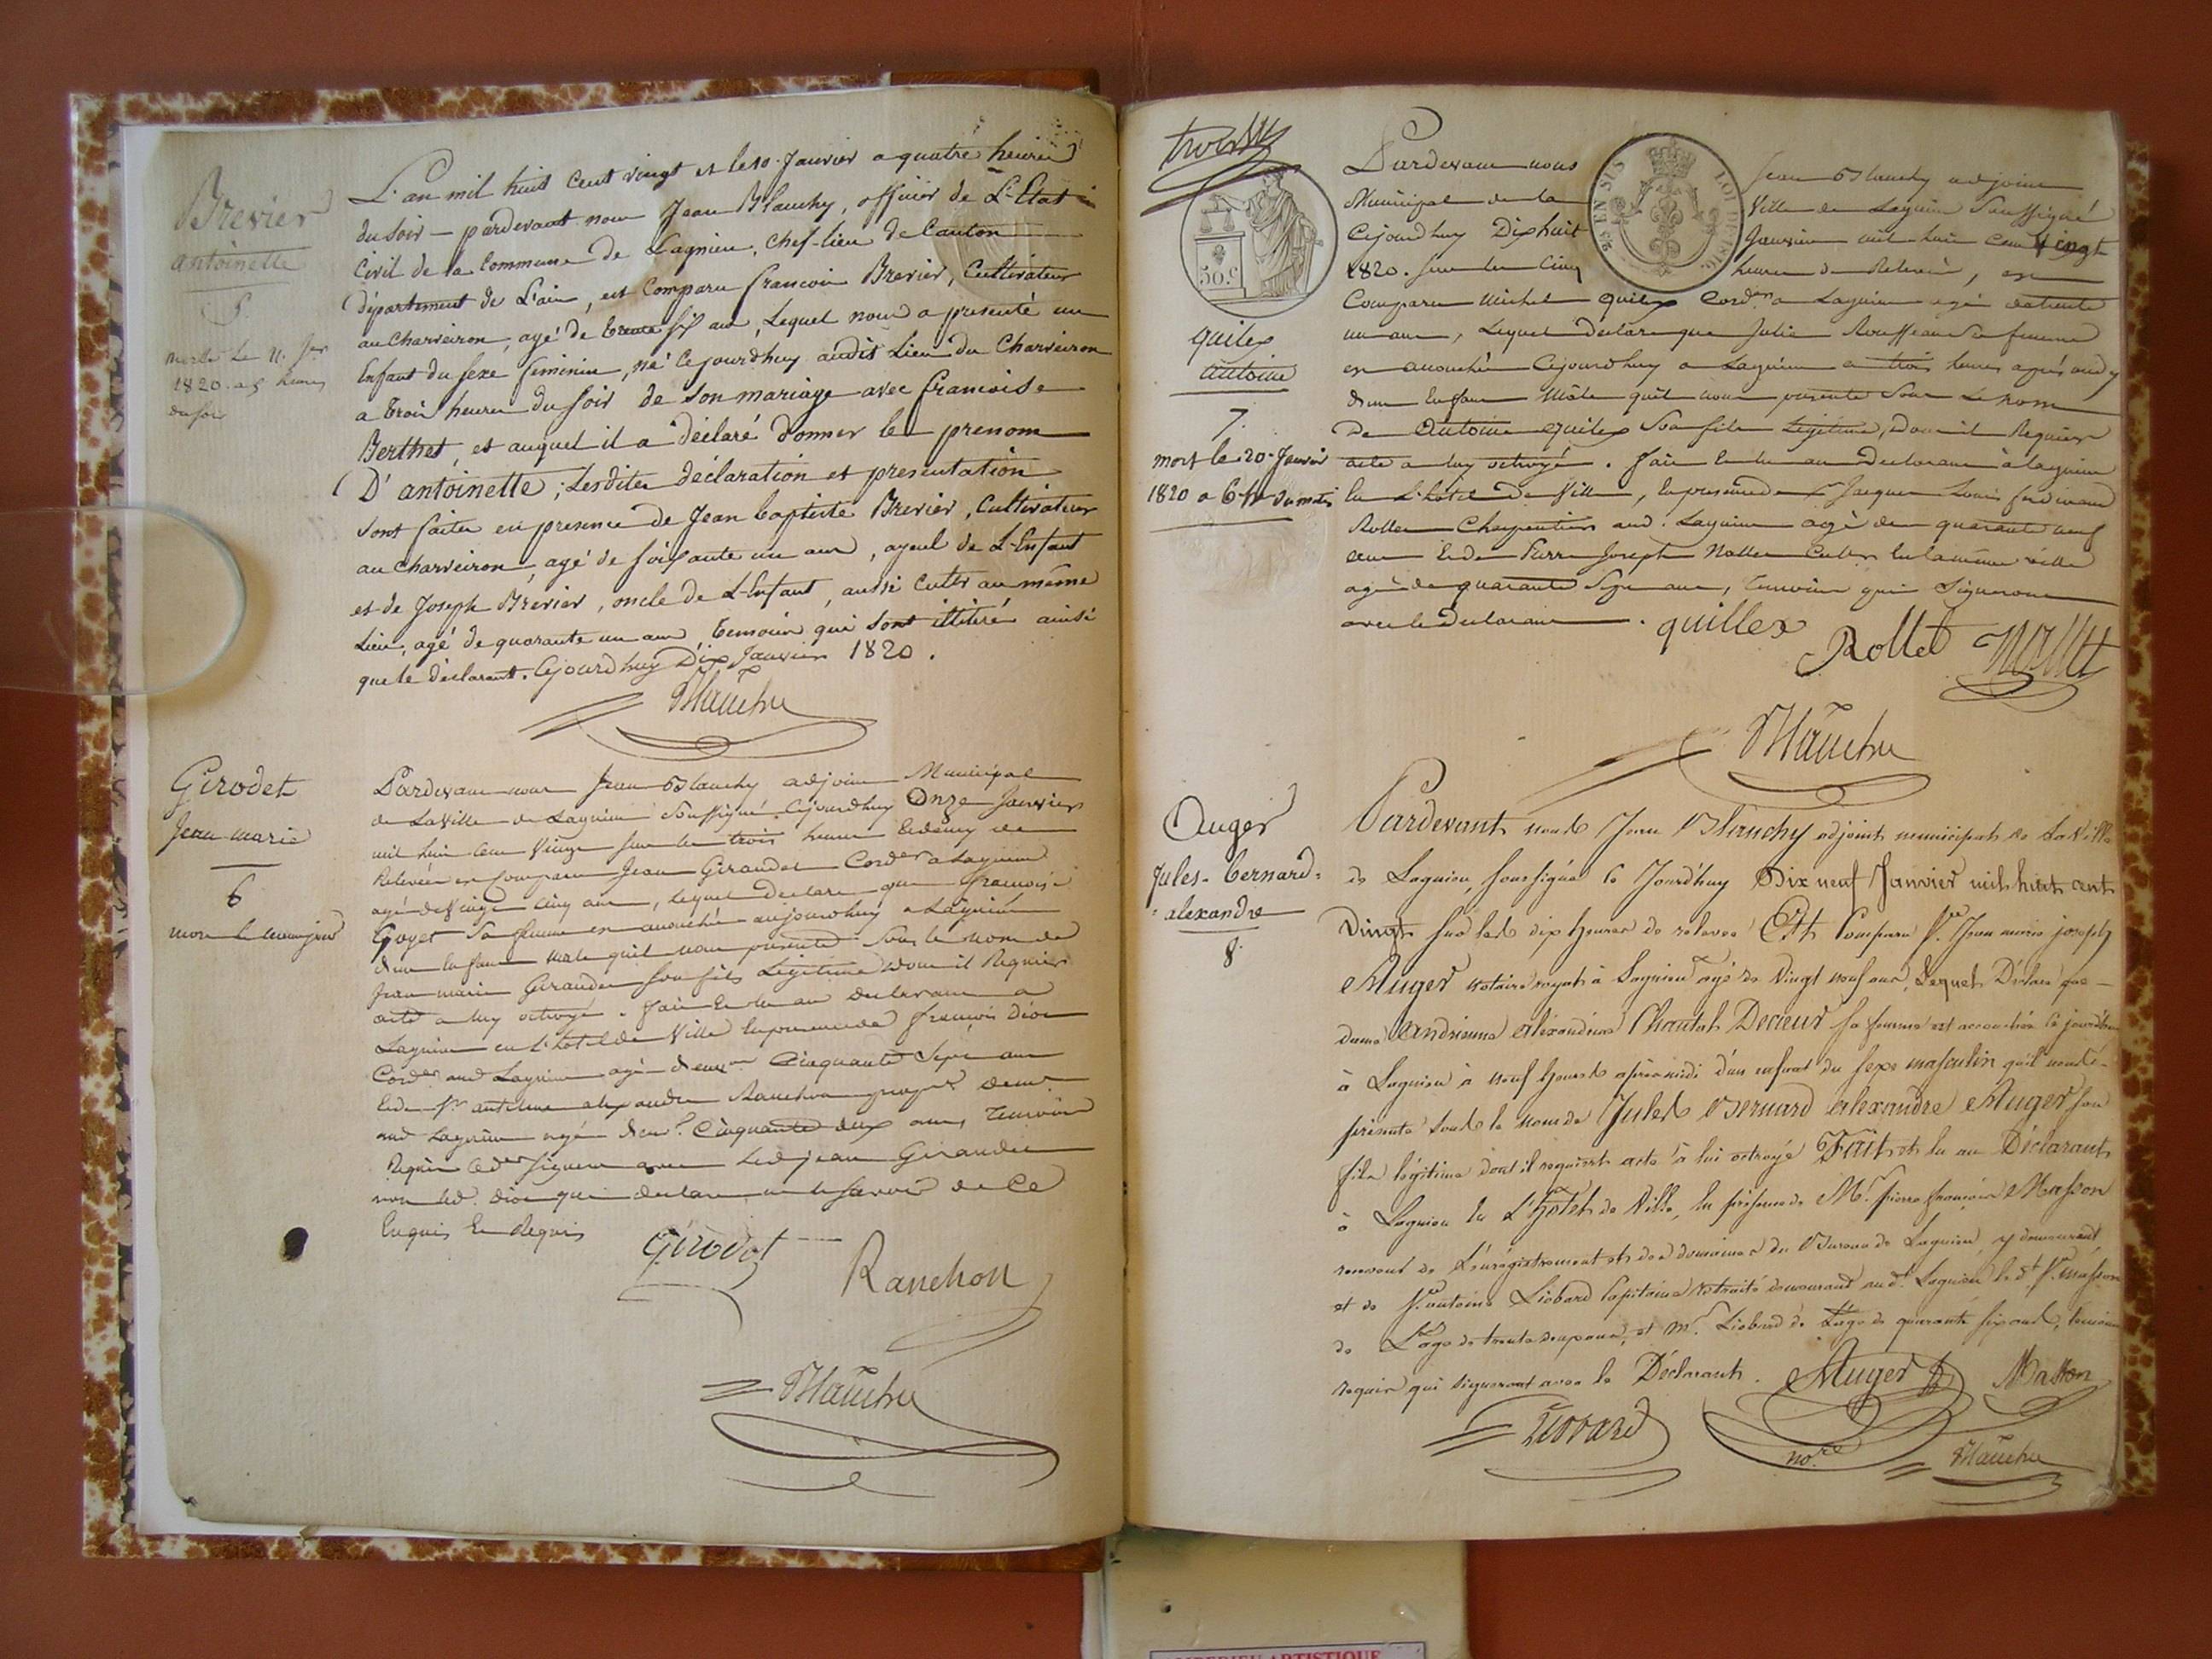 Brevier
antoinette
5.
morte Le 11. Jer
1820. a 5 heures
du soir
L'an mil huit Cent vingt et le 10. Janvier a quatre heures
du soir - pardevant nous Jean Blanchy, officier de L'Etat
Civil de la Commune de Lagnieu, chef-lieu de Canton
département de L'ain, est Comparu francois Brevier, Cultivateur
au Charveiron, agé de trente six ans, Lequel nous a presenté un
Enfant du sexe feminin, né Cejourdhuy audit Lieu du Charveiron
a trois heures du soir de son mariage avec francoise
Berthet, et auquel il a déclaré donner le prenom
D'antoinette; Lesdites déclaration et presentation
sont faites en presence de Jean baptiste Brevier, Cultivateur
au charveiron, agé de soixante un ans, ayeul de L'Enfant
et de Joseph Brevier, oncle de L'Enfant, aussi Cultr au même
Lieu, agé de quarante un ans, temoins qui sont illitéré ainsi
que le déclarant. Cejourdhuy Dix Janvier 1820.
Blanchy
Girodet
Jean marie
6
mort le meme jour
Pardevant nous Jean Blanchy adjoint Municipal
de La Ville de Lagnieu Soussigné. Cejourdhuy Onze Janvier
mil huit Cent Vingt sur les trois heures et demy de
Relevée est Comparu Jean Giraudet Corder a Lagnieu
agé de Vingt Cinq ans, lequel Declare que francoise
Goyet Sa femme est accouchée aujourdhuy a Lagnieu
d'un Enfant male quil nous presente Sous le nom de
Jean marie Giraudet son fils Légitime dont il Requier
acte a luy octroyé. Fait et lu au Declarant a
Lagnieu en L'hotel de Ville En presence de françois
Corder aud Lagnieu agé d'env. Cinquante Sept ans
et de Sr antelme alexandre Ranchon propre demt
aud Lagnieu agé d'env. Cinquante deux ans, Temoins
Requis Le der Signera avec Led jean Giraudet
non led. qui declare ne le Savoir de Ce
Enquis et Requis
Girodet
Ranchon
Blanchy
50.c
25 EN SUS
LOI DE 1816
quilex
antoine
7.
mort le 20. Janvier
1820 a 6 h du matin
Pardevant nous Jean Blanchy adjoint
Municipal de la Ville de Lagnieu Soussigné
Cejourdhuy Dixhuit Janvier mil huit cent Vingt
1820. sur les Cinq heures de Relevée, est
Comparu Michel quilex Corder a Lagnieu agé de trente
un ans, Lequel declare que Julie Rousseau Sa femme
est accouchée Cejourdhuy a Lagnieu a trois heures après midy
d'un Enfant Mâle quil nous presente Sous Le nom
De Antoine quilex Son fils Légitime, dont il Requier
acte a luy octroyé. Fait et lu au Declarant à Lagnieu
En L'hotel De Ville, En presence de Jacques Louis ferdinand
Rollet Charpentier aud. Lagnieu agé de quarante neuf
ans et de Pierre Joseph Nallet Cultr En la même ville
agé de quarante Sept ans, Temoins qui Signeront
avec le Declarant.
quillex
Rollet
Nallet
Blanchy
Auger
Jules-bernard-
-alexandre
8.
Pardevant nous Jean Blanchy adjoint municipal de La Ville
de Lagnieu, soussigné Ce Jourd'huy Dix neuf Janvier mil huit cent
Vingt sur les dix heures de relevée Est Comparu Sr. Jean marie joseph
Auger notaire royal à Lagnieu agé de Vingt neuf ans, Lequel Déclare que
dame Andrienne alexandrine Chantal Decreur sa femme est accouchée ce jourd'huy
à Lagnieu à neuf heures après midi d'un enfant du sexe masculin qu'il nous
présente sous le nom de Jules Bernard Alexandre Auger son
fils légitime dont il requiert acte à lui octroyé Fait et lu au Déclarant
à Lagnieu En L'hotel de Ville, En présence de Mr. pierre françois Masson
receveur de L'enregistrement et des domaines du Bureau de Lagnieu, y demeurant
et de Sr. antoine Liobard Capitaine retraité demeurant aud. Lagnieu led. Sr. masson
de L'age de trente deux ans, et Mr. Liobard de L'age de quarante six ans, temoins
requis qui signeront avec le Déclarant.
Auger
nore
Masson
Liobard
Blanchy